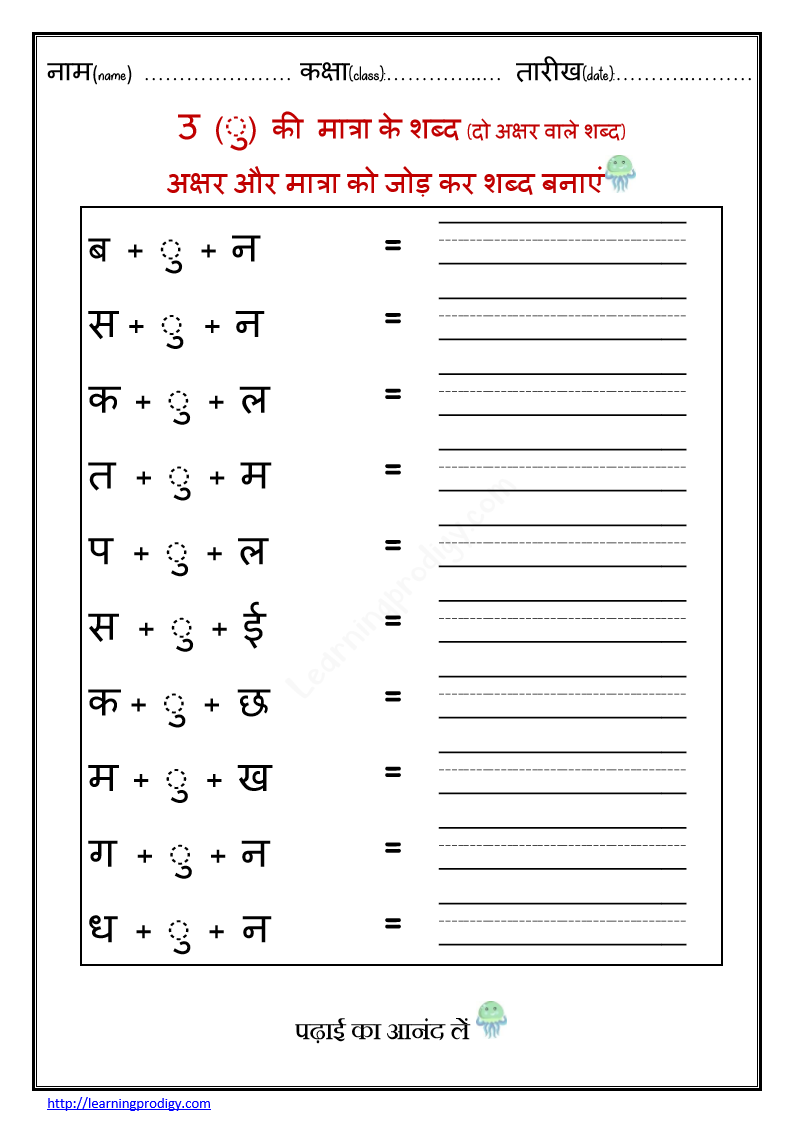 नाम(name) ………………… कक्षा(class):…………..… तारीख(date):………..………
उ (ु) की मात्रा के शब्द (दो अक्षर वाले शब्द)
अक्षर और मात्रा को जोड़ कर शब्द बनाएं
ब + ु + न =
स + ु + न =
क + ु + ल =
त + ु + म =
प + ु + ल =
स + ु + ई =
क + ु + छ =
म + ु + ख =
ग + ु + न =
ध + ु + न =
Learningprodigy.com
पढ़ाई का आनंद लें
http://learningprodigy.com